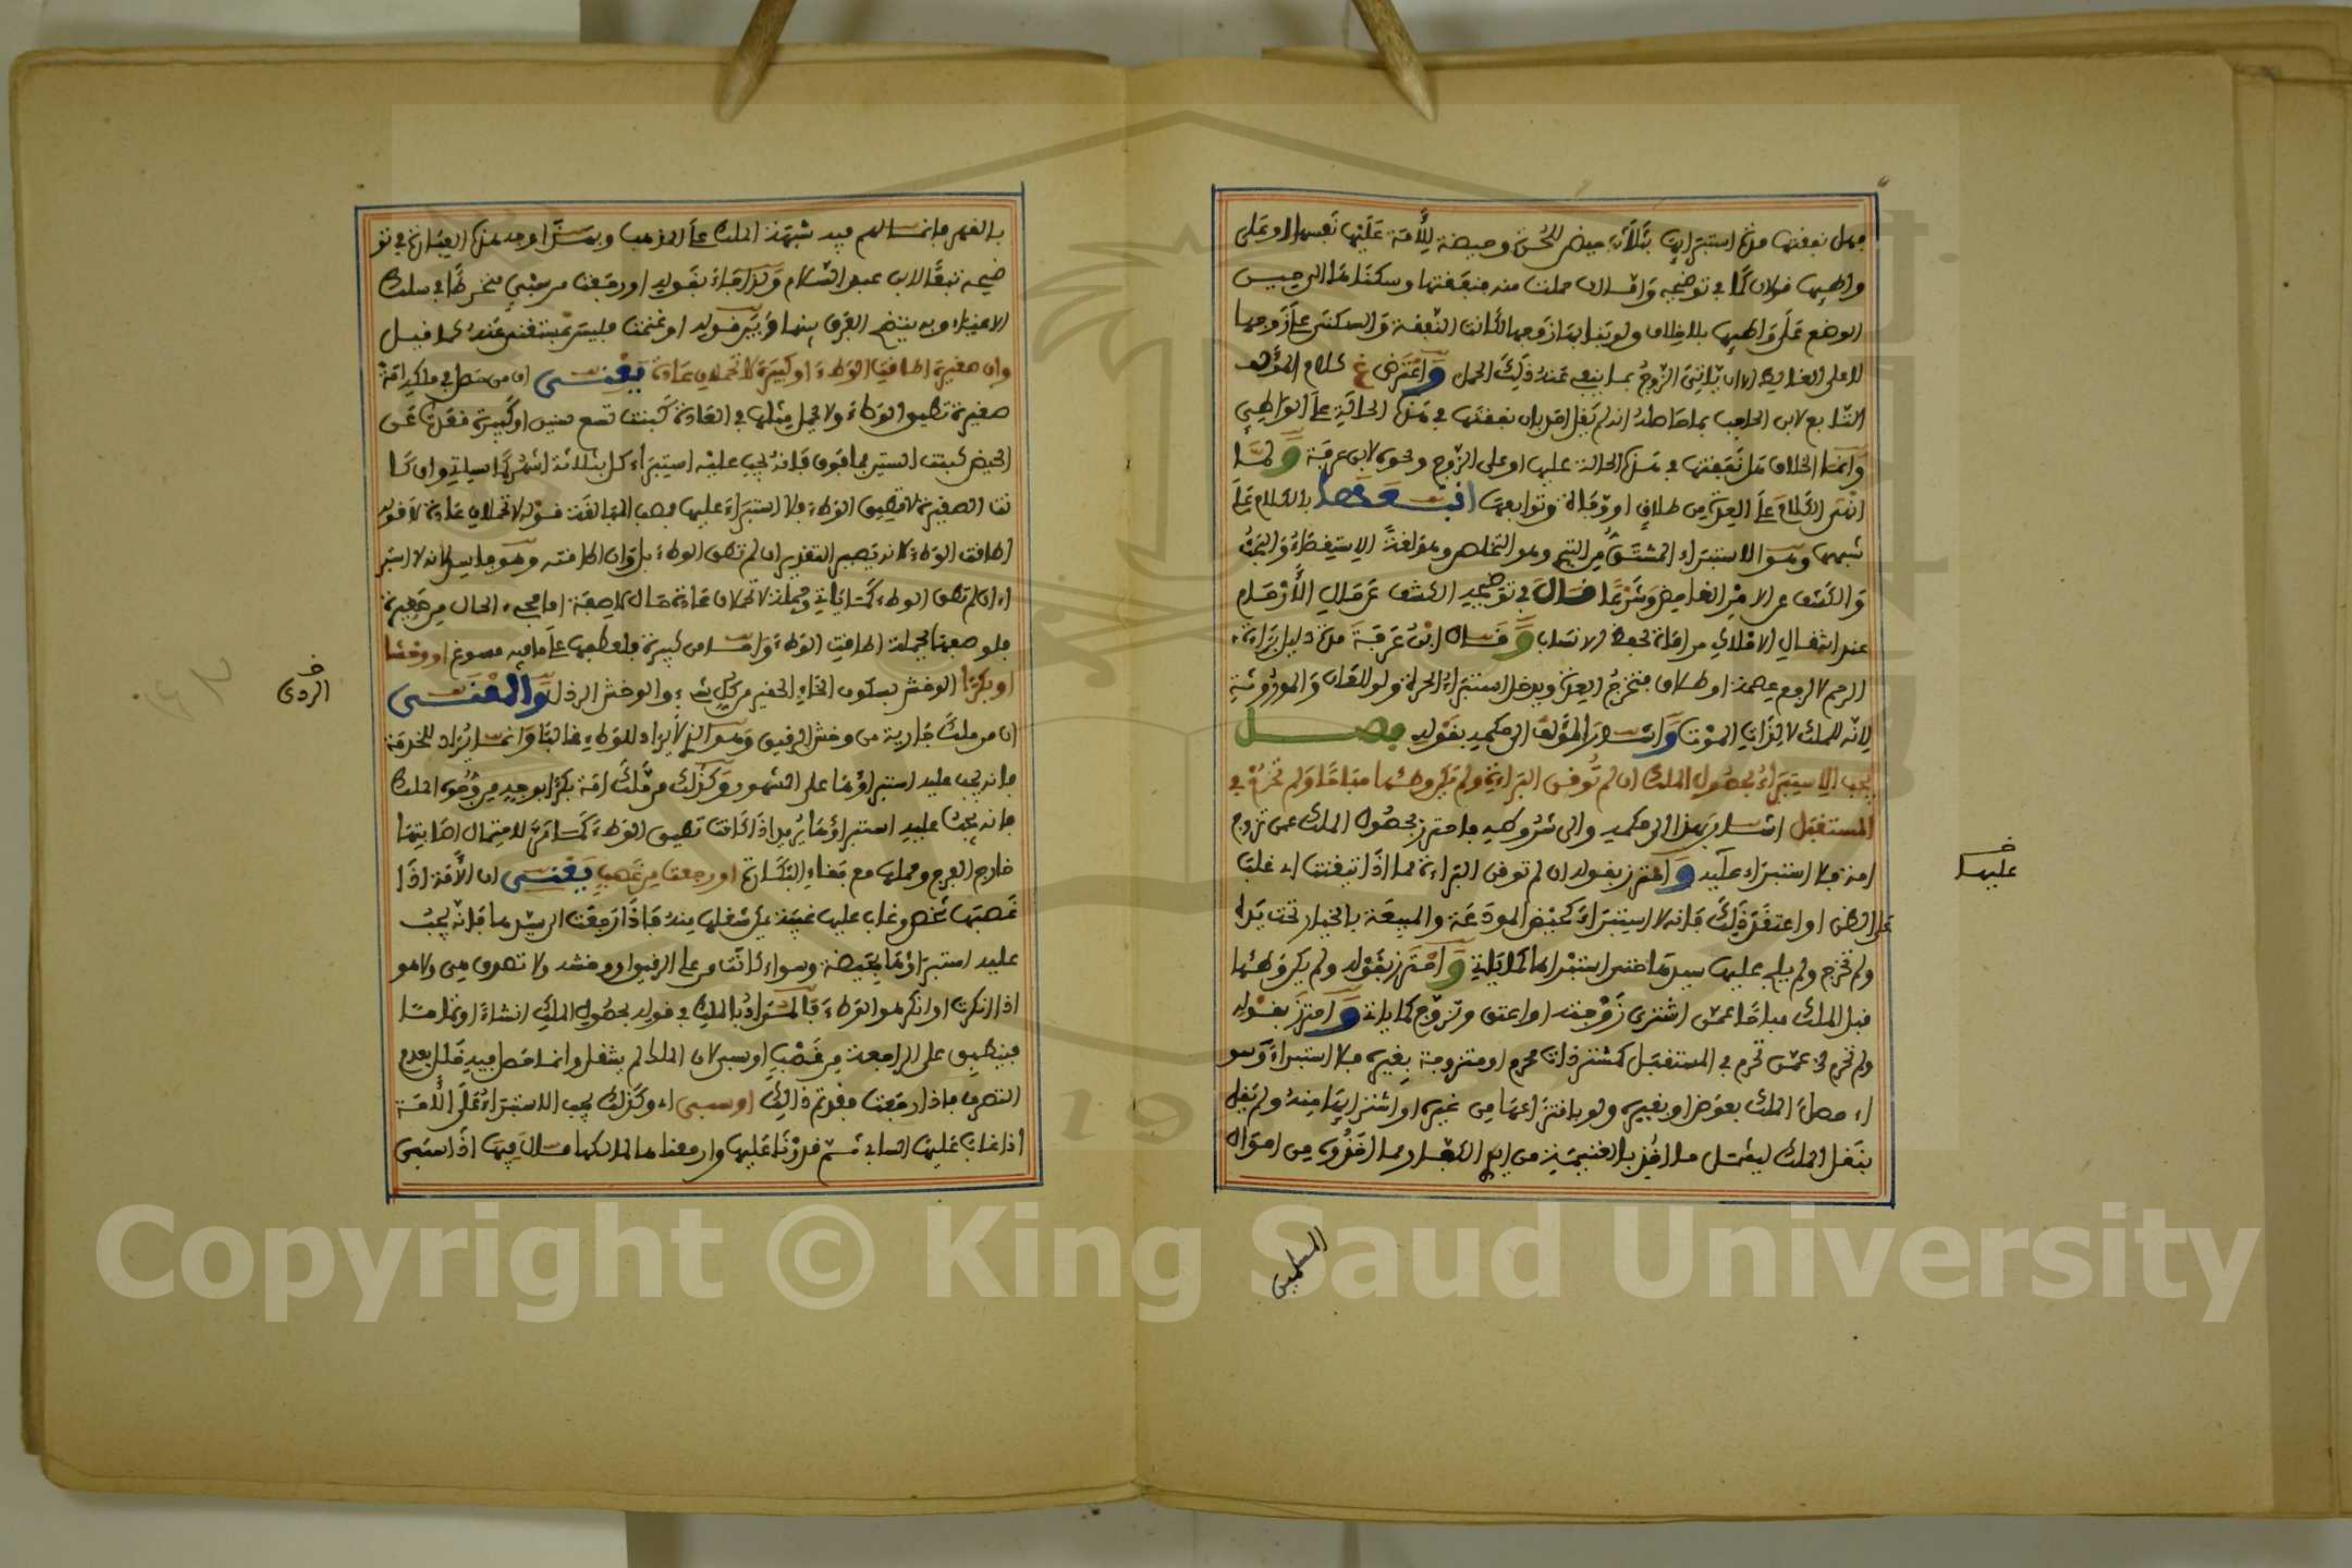 فهل نفقتها مدة استبرائها بثلاث حيض للحرة وحيضة للأمة عليها نفسها او على
واطئها قولان كما في توضيحه واما ان حملت منه فنفقتها وسكناها الى حين
الوضع على واطئها بلا خلاف ولو بنا بها زوجها لكانت النفقة والسكنى على زوجها
لا على الغالط الا ان ينفي الزوج بما ينفي عنه ذلك الحمل واعترض غ كلام المؤلف
التابع لابن الحاجب بما حاصله انه لم يقل احد بان نفقتها في هذه الحالة على الواطئ
وانما الخلاف هل نفقتها في هذه الحالة عليها او على الزوج ونحوه لابن عرفة ولما
انهى الكلام على العدة من طلاق او وفاة وتوابعها اتبعها بالكلام على
شبهها وهو الاستبراء المشتق من التبري وهو التخلص وهو لغة الاستقصاء والبحث
والكشف عن الامر الغامض وشرعا قال في توضيحه الكشف عن حال الأرحام
عند انتقال الاملاك مراعاة لحفظ الانساب وقال ابن عرفة مدة دليل براءة
الرحم لا لرفع عصمة او طلاق فتخرج العدة ويدخل استبراء الحرة ولو للعان والموروثة
لانه للملك لا لذات الموت واشار المؤلف الى حكمه بقوله فصل
يجب الاستبراء بحصول الملك ان لم توقن البراءة ولم يكن وطئها مباحا ولم تحرم في
المستقبل اشار بهذا الى حكمه والى شروطه فاحترز بحصول الملك عمن تزوج
امة فلا استبراء عليه واحترز بقوله ان لم توقن البراءة مما اذا تيقنت اي غلب
على الظن او اعتقد ذلك فانه لا استبراء كحيض المودعة والمبيعة بالخيار تحت يده
ولم تخرج ولم يلج عليها سيدها حين استبرائها كما ياتي واحترز بقوله ولم يكن وطئها
قبل الملك مباحا عمن اشترى زوجته او اعتق وتزوج كما ياتي واحترز بقوله
ولم تحرم في عمن تحرم في المستقبل كمشتر ذات محرم او متزوجة بغيره فلا استبراء وسوا
اي حصل الملك بعوض او بغيره ولو بانتزاعها من غيره او اشترائها منه ولم يقل
بنقل الملك ليشمل ما اخذ بالغنيمة من ايدي الكفار مما اخذوه من اموال
المسلمين
عليها
بالقهر فانما لهم فيه شبهة الملك على المذهب وبهذا وجه هذه العبارة في تو
ضيحه تبعا لابن عبد السلام ولذا جاء بقوله او رجعت من سبي منخرطا في سلك
الاغياء وبه يتضح الفرق بينها وبين قوله او غنمت فليس بمستغنى عنه كما قيل
وان صغيرة اطاقت الوطء او كبيرة لا تحملان عادة يعني ان من حصل في ملكه امة
صغيرة تطيق الوطء ولا يحمل مثلها في العادة كبنت تسع سنين او كبيرة قعدت عن
الحيض كبنت الستين فما فوق فانه يجب عليه استبراء كل بثلاثة اشهر كما سياتي وان كا
نت الصغيرة لا تطيق الوطء فلا استبراء عليها فصب المبالغة قوله لا تحملان عادة لا قوله
اطاقت الوطء لانه يصير التقدير ان لم تطق الوطء بل وان اطاقته وهو فاسد لانه لا استبر
اء ان لم تطق الوطء كما ياتي وجملة لا تحملان عادة حال لا صفة اما مجيء الحال من صغيرة
فلوصفها بجملة اطاقت الوطء واما من كبيرة فلعطفها على ما فيه مسوغ او وخشا
او بكرا الوخش بسكون الخاء الحقير من كل شيء والوخش الرذل والمعنى
ان من ملك جارية من وخش الرقيق وهو الذي لا يراد للوطء غالبا وانما يراد للخدمة
فانه يجب عليه استبراؤها على المشهور وكذلك من ملك امة بكرا بوجه من وجوه الملك
فانه يجب عليه استبراؤها يريد اذا كانت تطيق الوطء كما مر لاحتمال اصابتها
خارج الفرج وحملها مع بقاء البكارة او رجعت من غصب يعني ان الأمة اذا
غصبها شخص وغاب عليها غيبة يمكن شغلها منه فاذا رجعت الى سيدها فانه يجب
عليه استبراؤها بحيضة وسواء كانت من علي الرقيق او وخشه ولا تصدق هي ولا هو
اذا انكرت او انكر هو الوطء فالمراد بالملك في قوله بحصول الملك انشاء او تماما
فينطبق على الراجعة من غصب او سبي لان الملك لم ينتقل وانما حصل فيه خلل بعدم
التصرف فاذا رجعت فقد تم ذلك او سبي اي وكذلك يجب الاستبراء على الأمة
اذا غاب عليها السابي ثم قدرنا عليها وارجعناها لمالكها قال فيها اذا سبى
خ الردي